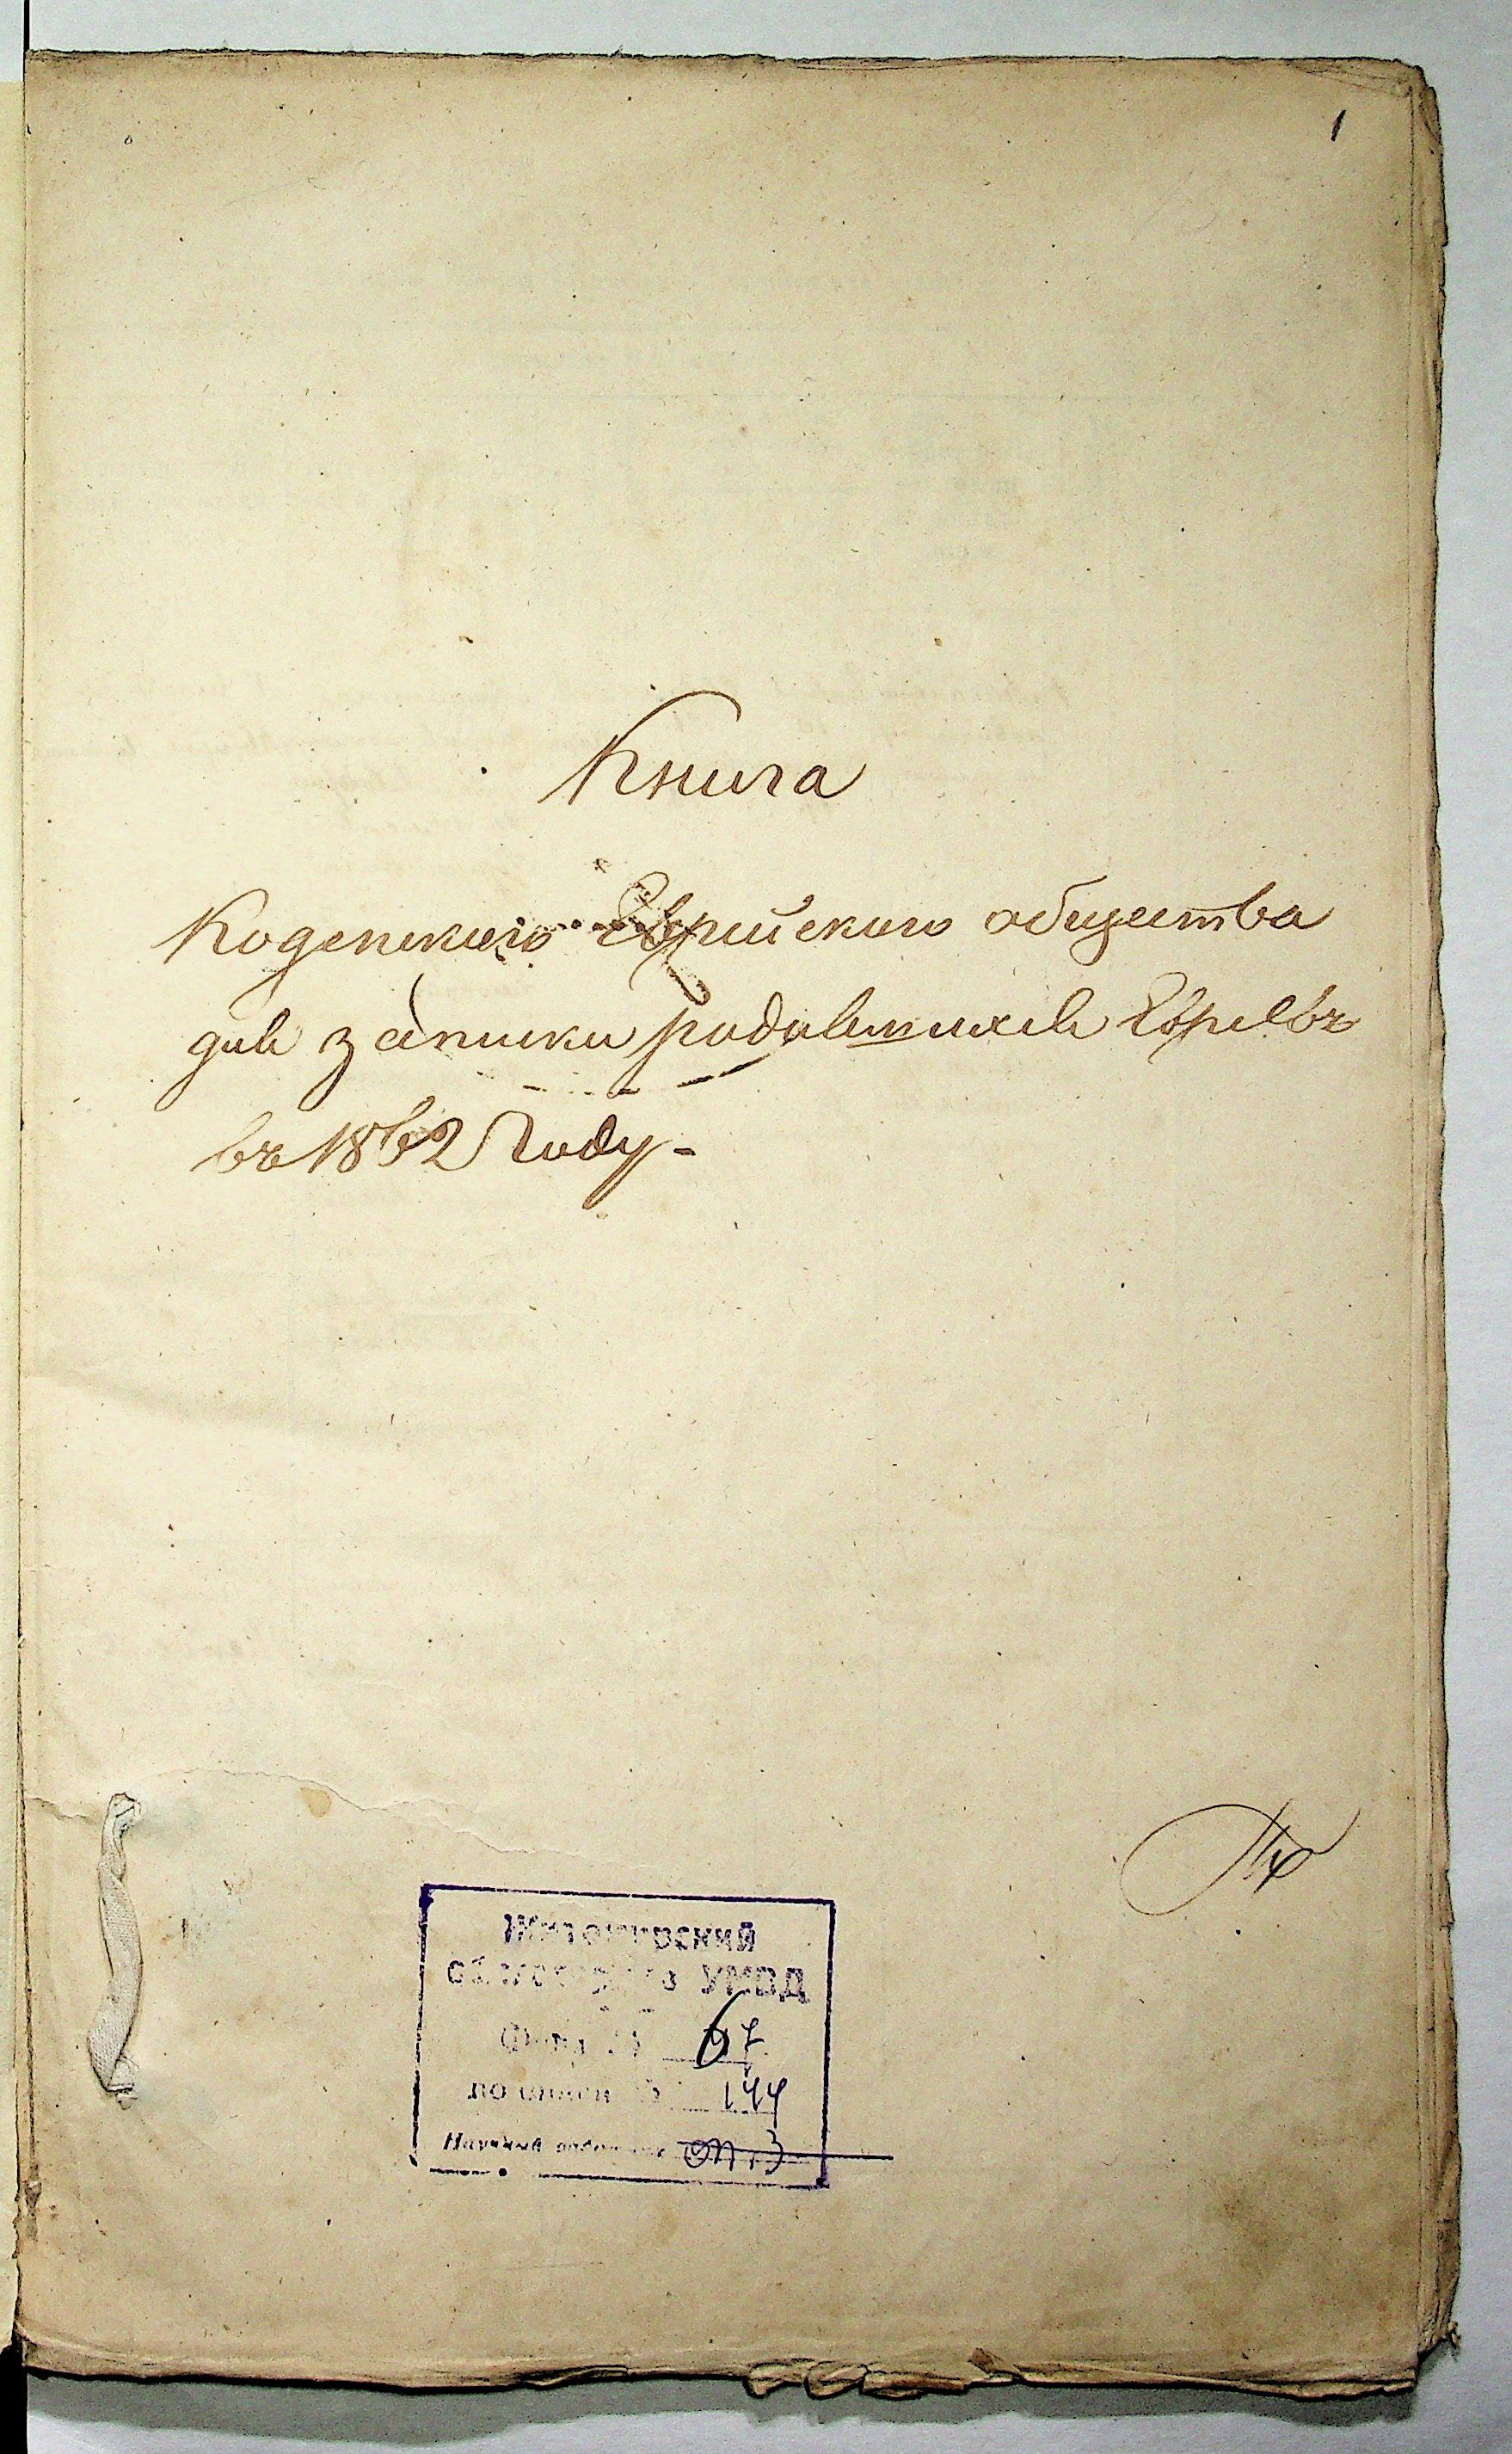 1
Книга
Коденского Еврейского общества
для записки родившихся Евреевъ
въ 1862 Году -
Житомирский
облгосархив УМВД
Фонд № 67
по описи № 144
Научный работник оп. 3